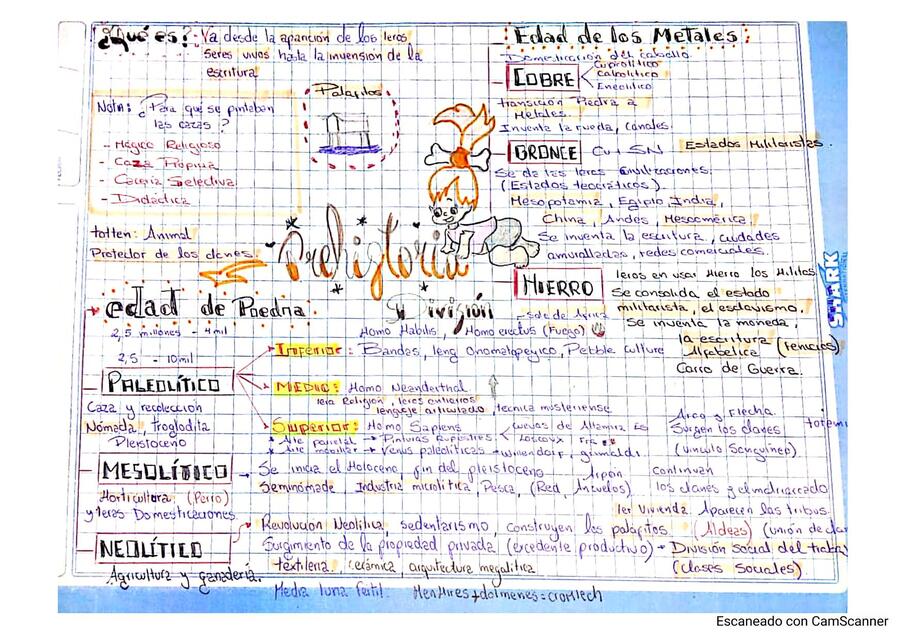 ¿Qué es?: Va desde la aparición de los 1eros
Seres vivos hasta la invensión de la
escritura
Nota: ¿Para qué se pintaban
las cazas?
- Mágico Religioso
- Caza Propicia
- Cacería Selectiva
- Didáctica
totten: Animal
Protector de los clanes.
Palafitos
Prehistoria
División
edad de Piedra:
2,5 millones - 4mil
2,5 - 10mil
PALEOLÍTICO
Caza y recolección
Nómada, troglodita
Pleistoceno
Homo Habilis, Homo erectus (Fuego)
sale de África
Inferior: Bandas, leng Onomatopeyico, Pebble culture
MEDIO: Homo Neanderthal
1era Religión, 1eros entierros
lenguaje articulado, tecnica musteriense
Superior: Homo Sapiens
* Arte parietal → Pinturas Rupestres
Cuevas de Altamira Es
Lascaux Fra
* Arte mobiliar → Venus paleolíticas → Winendorf, grimaldi
Arco y flecha.
Surgen los clanes
totem
(vinculo Sanguíneo).
MESOLÍTICO
Horticultura (Perro)
y 1eras Domesticaciones
Se inicia el Holoceno, fin del pleistoceno
Seminómade, Industria microlítica, Pesca, (Red, Anzuelos)
Arpón
continuan
los clanes y el matriarcado
NEOLÍTICO
Agricultura y ganadería.
1er Vivienda Aparecen las tribus
Revolución Neolítica, sedentarismo, construyen los palafitos (Aldeas) (unión de clan
Surgimiento de la propiedad privada (excedente productivo) → División social del trabaj
textileria, cerámica, arquitectura megalítica
(clases Sociales)
Media luna fértil. Menhires + dolmenes = cromlech
Edad de los Metales:
Domesticación del caballo
COBRE
Cuprolítico
Calcolítico
Eneolítico
transición Piedra a
Metales.
Inventa la rueda, canales.
BRONCE Cu + SN
Estados Militaristas.
Se da las 1eras civilizaciones.
(Estados teocráticos).
Mesopotamia, Egipto, India,
China, Andes, Mesoamérica,
Se inventa la escritura, ciudades
amuralladas, redes comerciales.
HIERRO
1eros en usar Hierro los Hititas
Se consolida el estado
militarista, el esclavismo.
Se inventa la moneda,
la escritura
Alfabetica (fenicios)
Carro de Guerra.
STARK
Escaneado con CamScanner